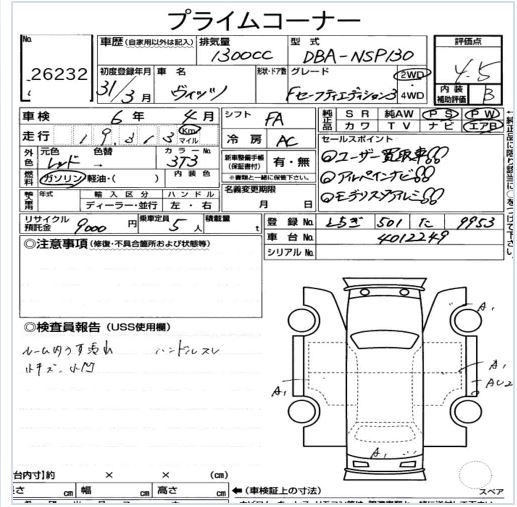 プライムコーナー
No.
26232
車歴 (自家用以外は記入)
排気量
1300CC
型式
DBA-NSP130
評価点
4.5
初度登録年月
31/3月
車名
ヴィッツ
形状・ドア数
グレード
Fセーフティエディション3
2WD
4WD
内装
補助評価
B
車検 6年 4月
シフト FA
純正品
SR 純AW PS PW
カワ TV ナビ エアB
走行 19,313 Km マイル
冷房 AC
セールスポイント
◎ユーザー買取車!!
◎アルパインナビ!!
◎モデリスタアルミ!!
外色
元色 レッド
色替 →
カラーNo. 3T3
新車整備手帳
(保証書付)
※書類と一緒に保管下さい。
有・無
燃料
ガソリン 軽油・( )
内装色
名義変更期限
月 日
輸入車
年式
輸入区分
ディーラー・並行
ハンドル
左・右
リサイクル預託金 9000円
乗車定員 5人
積載量 t
登録No. とちぎ 501 た 9953
車台No. 4012249
シリアルNo.
◎注意事項 (修復・不具合箇所および状態等)
◎検査員報告 (USS使用欄)
ルーム内うす汚れ ハンドルスレ
小キズ、小凹
A1
A1
AU2
A1
A1
スペア
台内寸)約 × × (cm)
長さ cm 幅 cm 高さ cm
←(車検証上の寸法)